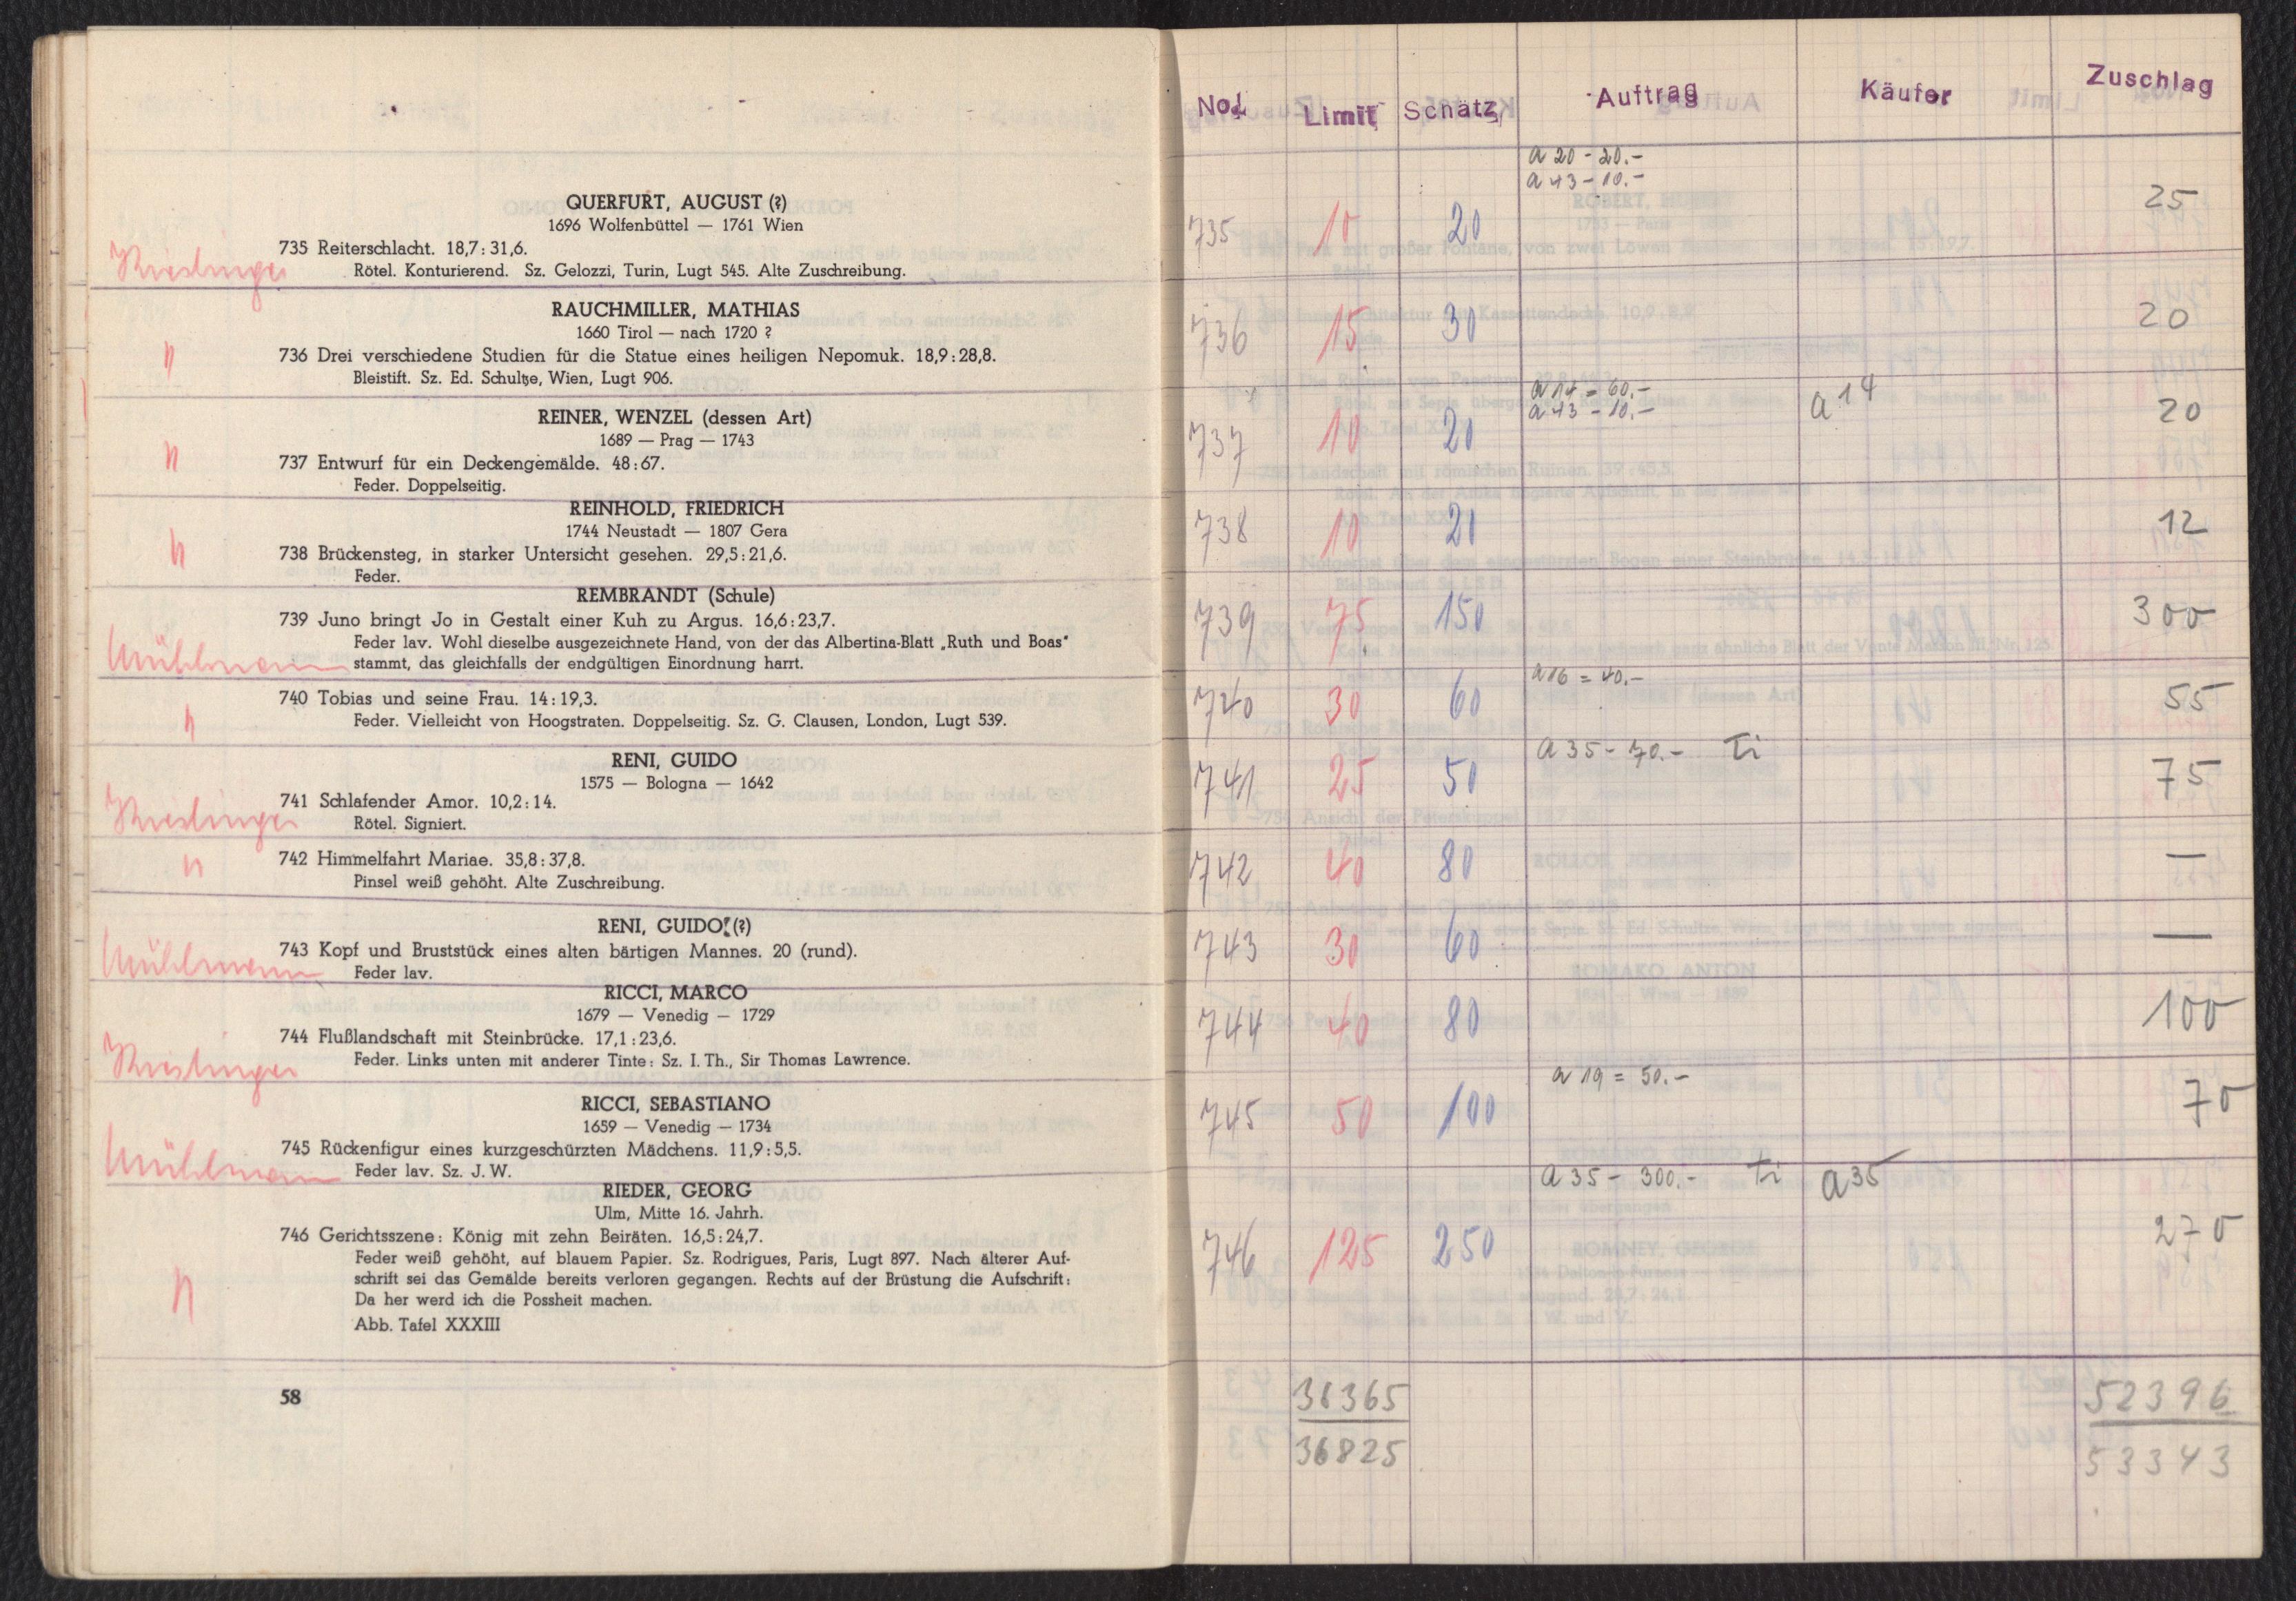 QUERFURT, AUGUST (?)
1696 Wolfenbüttel — 1761 Wien
735 Reiterschlacht. 18,7:31,6.
Rötel. Konturierend. Sz. Gelozzi, Turin, Lugt 545. Alte Zuschreibung.
RAUCHMILLER, MATHIAS
1660 Tirol — nach 1720 ?
736 Drei verschiedene Studien für die Statue eines heiligen Nepomuk. 18,9:28,8.
Bleistift. Sz. Ed. Schultze, Wien, Lugt 906.
REINER, WENZEL (dessen Art)
1689 — Prag — 1743
737 Entwurf für ein Deckengemälde. 48:67.
Feder. Doppelseitig.
REINHOLD, FRIEDRICH
1744 Neustadt — 1807 Gera
738 Brückensteg, in starker Untersicht gesehen. 29,5:21,6.
Feder.
REMBRANDT (Schule)
739 Juno bringt Jo in Gestalt einer Kuh zu Argus. 16,6:23,7.
Feder lav. Wohl dieselbe ausgezeichnete Hand, von der das Albertina-Blatt „Ruth und Boas"
Mühlmann stammt, das gleichfalls der endgültigen Einordnung harrt.
740 Tobias und seine Frau. 14:19,3.
Feder. Vielleicht von Hoogstraten. Doppelseitig. Sz. G. Clausen, London, Lugt 539.
RENI, GUIDO
1575 — Bologna — 1642
741 Schlafender Amor. 10,2:14.
Rötel. Signiert.
742 Himmelfahrt Mariae. 35,8:37,8.
Pinsel weiß gehöht. Alte Zuschreibung.
RENI, GUIDO (?)
743 Kopf und Bruststück eines alten bärtigen Mannes. 20 (rund).
Mühlmann Feder lav.
RICCI, MARCO
1679 — Venedig — 1729
744 Flußlandschaft mit Steinbrücke. 17,1:23,6.
Feder. Links unten mit anderer Tinte: Sz. I. Th., Sir Thomas Lawrence.
RICCI, SEBASTIANO
1659 — Venedig — 1734
745 Rückenfigur eines kurzgeschürzten Mädchens. 11,9:5,5.
Mühlmann Feder lav. Sz. J. W.
RIEDER, GEORG
Ulm, Mitte 16. Jahrh.
746 Gerichtsszene: König mit zehn Beiräten. 16,5:24,7.
Feder weiß gehöht, auf blauem Papier. Sz. Rodrigues, Paris, Lugt 897. Nach älterer Auf-
schrift sei das Gemälde bereits verloren gegangen. Rechts auf der Brüstung die Aufschrift:
Da her werd ich die Possheit machen.
Abb. Tafel XXXIII
58
No. Limit Schätz Auftrag Käufer Zuschlag
a 20 - 20.-
a 43 - 10.-
735 10 20 25
736 15 30 20
a 14 = 60.-
a 43 - 10.-
737 10 20 a 14 20
738 10 20 12
739 75 150 300
740 30 60 a 16 = 40.- 55
741 25 50 a 35 - 70.- Ti 75
742 40 80 —
743 30 60 —
744 40 80 100
745 50 100 a 19 = 50.- 70
746 125 250 a 35 - 300.- Ti a 35 270
36365 52396
36825 53343